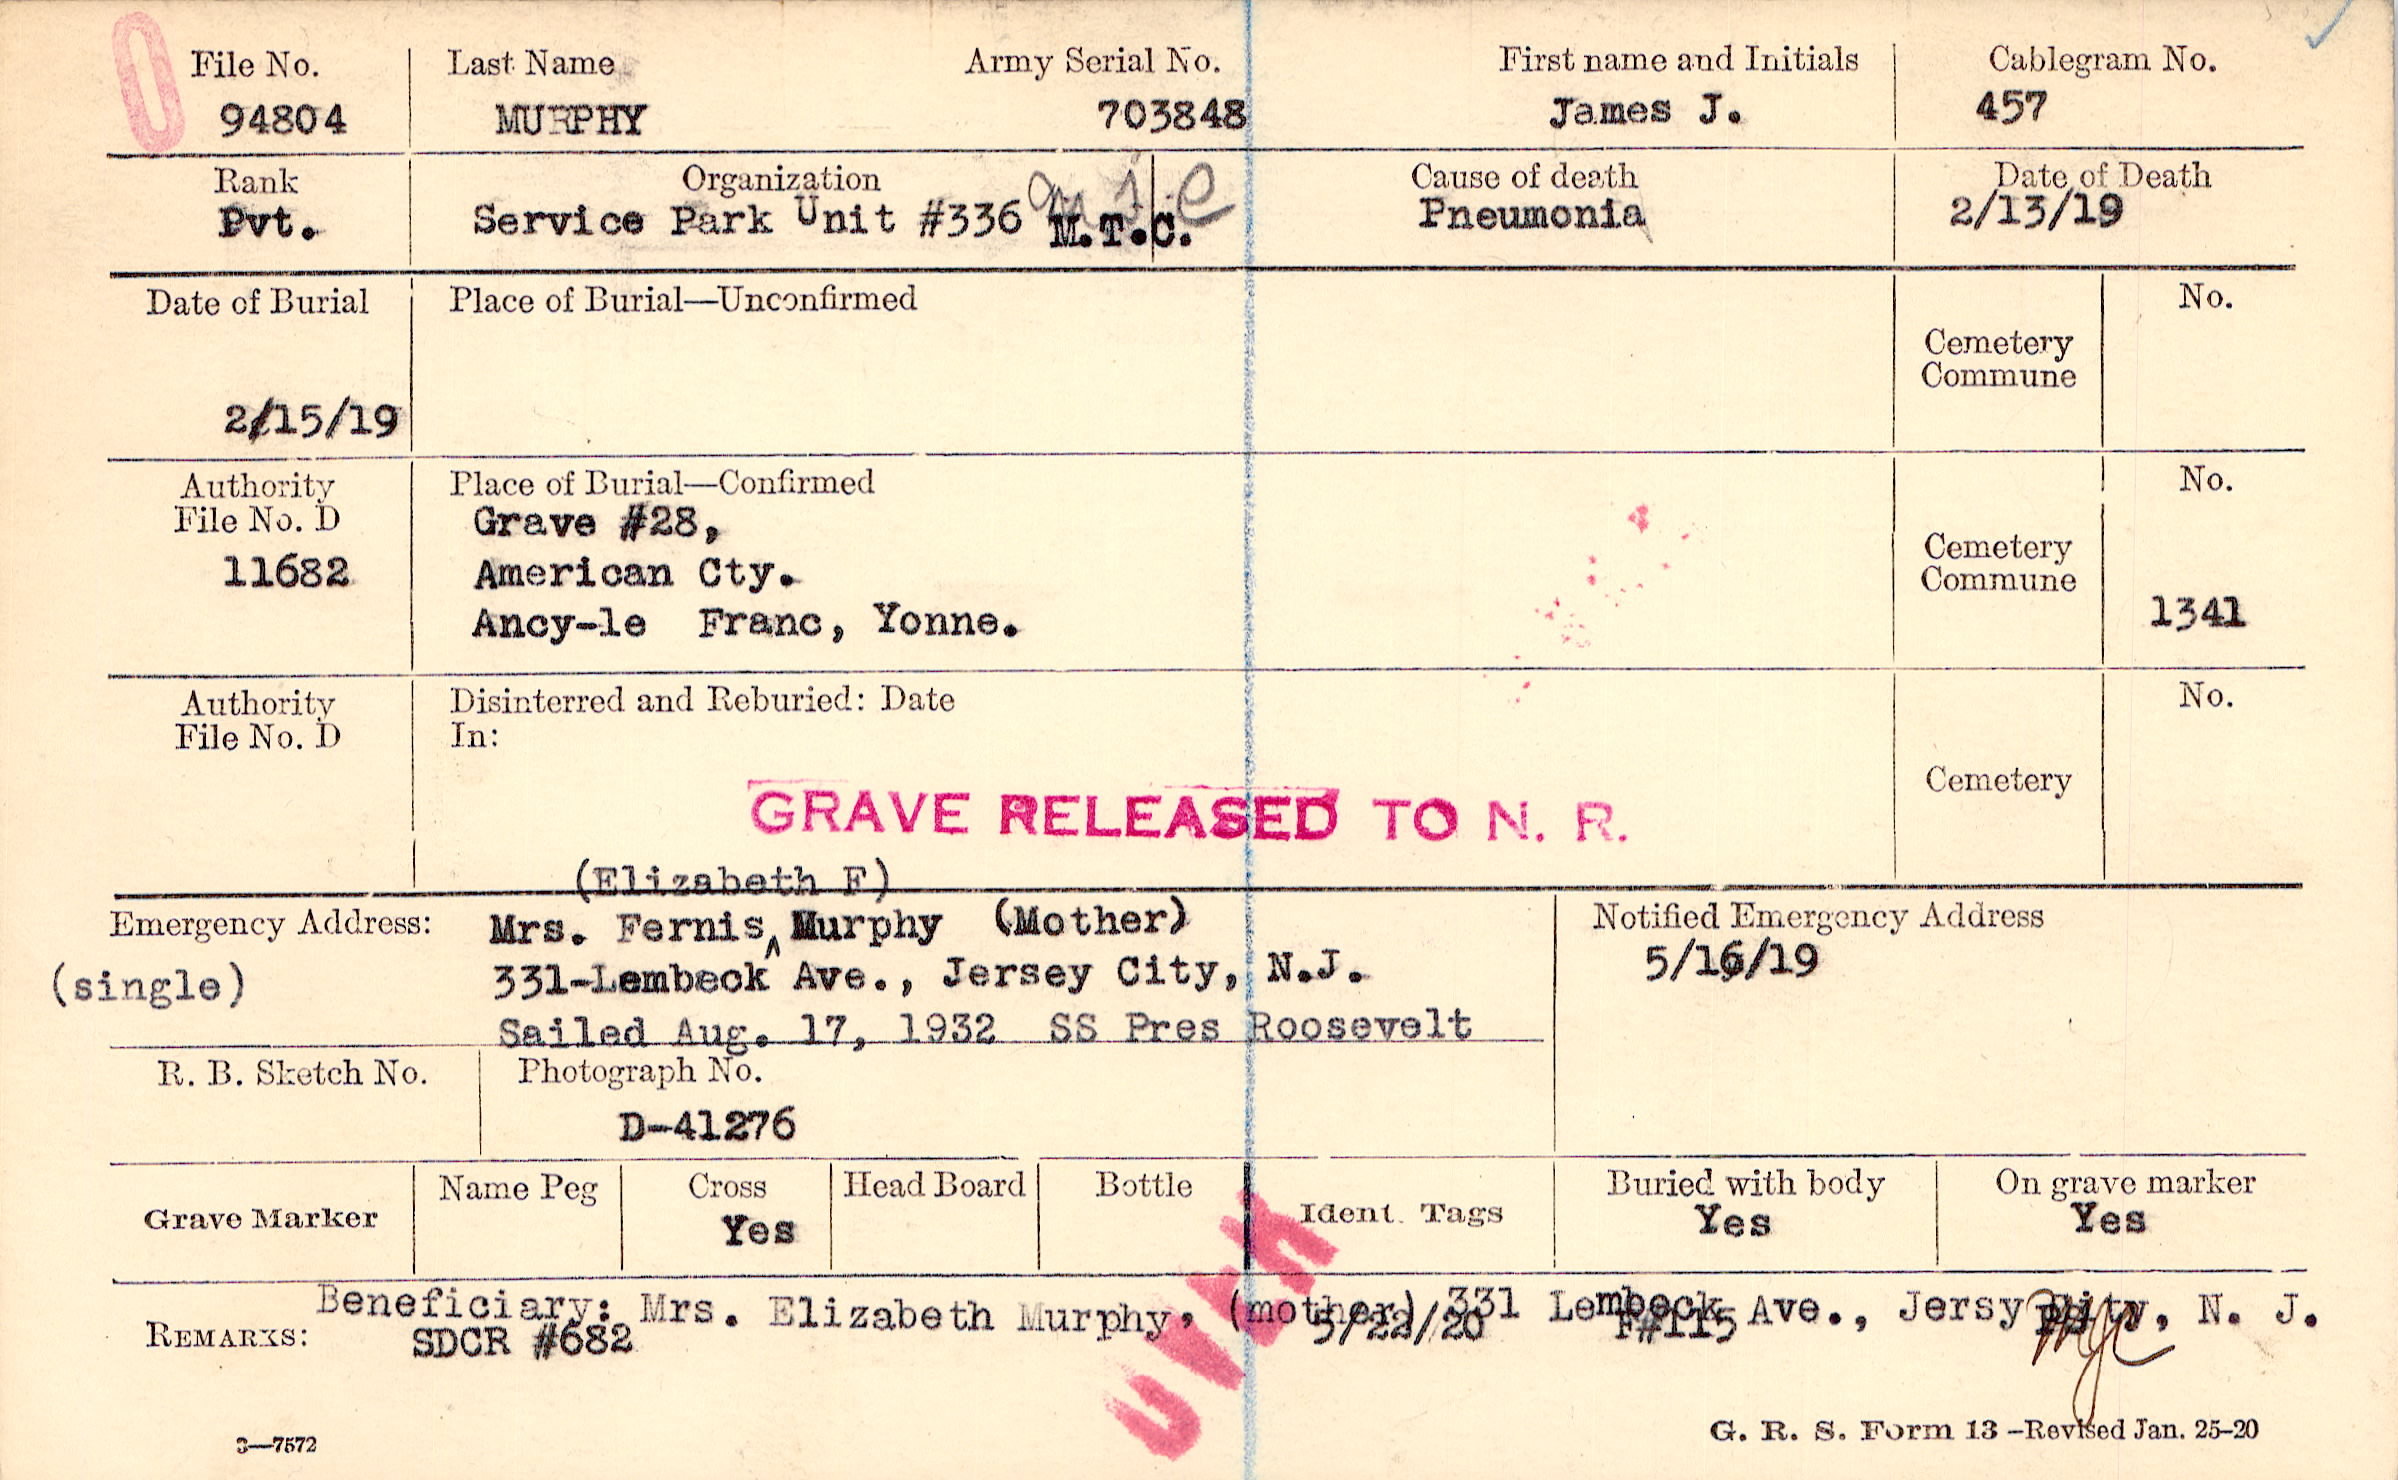 File No. Last Name Army Serial No. First name and Initials Cablegram No.
94804 MURPHY 703848 James J. 457
Rank Organization Cause of death Date of Death
Pvt. Service Park Unit #336 M.T.C. Pneumonia 2/13/19
Date of Burial Place of Burial—Unconfirmed No.
Cemetery
Commune
2/15/19
Authority Place of Burial—Confirmed No.
File No. D Grave #28,
11682 American Cty. Cemetery
Commune
Ancy-le Franc, Yonne. 1341
Authority Disinterred and Reburied: Date No.
File No. D In:
Cemetery
GRAVE RELEASED TO N. R.
(Elizabeth F)
Emergency Address: Mrs. Fernis Murphy (Mother) Notified Emergency Address
(single) 331-Lembeck Ave., Jersey City, N.J. 5/16/19
Sailed Aug. 17, 1932 SS Pres Roosevelt
R. B. Sketch No. Photograph No.
D-41276
Grave Marker Name Peg Cross Head Board Bottle Ident. Tags Buried with body On grave marker
Yes Yes Yes
Beneficiary: Mrs. Elizabeth Murphy, (mother) 331 Lembeck Ave., Jersy City, N. J.
REMARKS: SDCR #682 5/22/20 F#115
3—7572
G. R. S. Form 13 —Revised Jan. 25-20